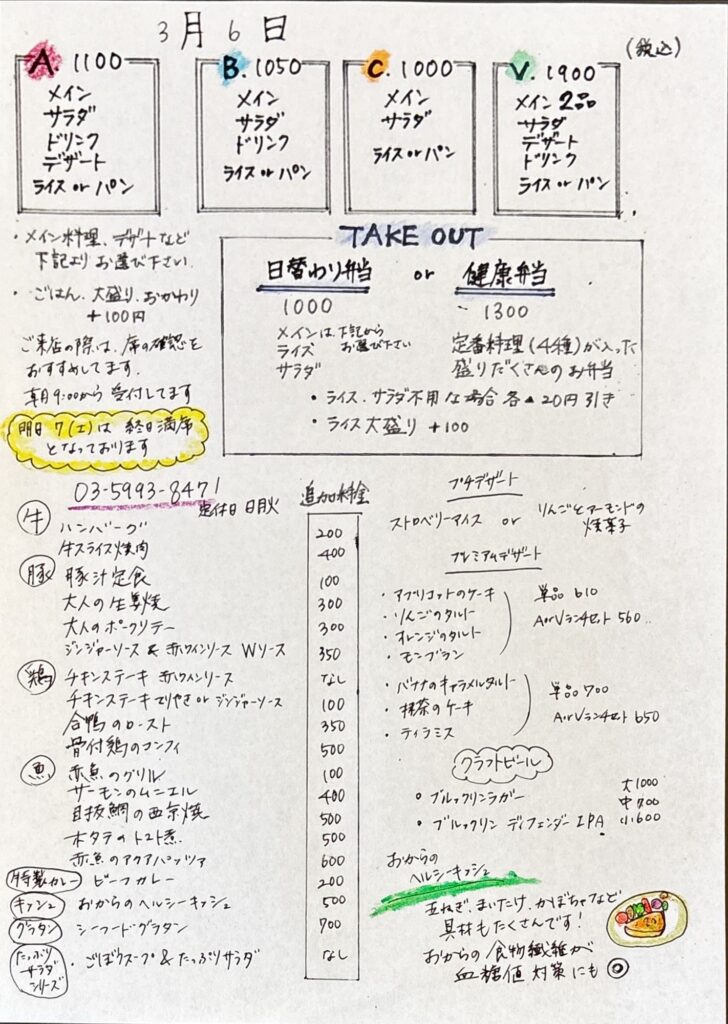 3月6日
(税込)
A. 1100
メイン
サラダ
ドリンク
デザート
ライス or パン
B. 1050
メイン
サラダ
ドリンク
ライス or パン
C. 1000
メイン
サラダ
ライス or パン
V. 1900
メイン 2品
サラダ
デザート
ドリンク
ライス or パン
・メイン料理、デザートなど
下記より お選び下さい.
・ごはん、大盛り、おかわり
+100円
ご来店の際は、席の確認を
おすすめしてます.
朝9:00から 受付してます
明日 7(土)は 終日満席
となっております
TAKE OUT
日替わり弁当 or 健康弁当
1000
メインは、下記から
お選び下さい
ライス
サラダ
1300
定番料理(4種)が入った
盛りだくさんのお弁当
・ライス、サラダ不用な場合 各▲20円引き
・ライス大盛り +100
03-5993-8471
定休日 日月火
追加料金
牛
ハンバーグ 200
牛スライス焼肉 400
豚
豚汁定食 100
大人の生姜焼 300
大人のポークソテー 300
ジンジャーソース & 赤ワインソース Wソース 350
鶏
チキンステーキ 赤ワインソース なし
チキンステーキ てりやき or ジンジャーソース 100
合鴨のロースト 350
骨付鶏のコンフィ 500
魚
赤魚のグリル 100
サーモンのムニエル 400
目抜鯛の西京焼 500
ホタテのトマト煮 500
赤魚のアクアパッツァ 600
特製カレー ビーフカレー 200
キッシュ おからのヘルシーキッシュ 500
グラタン シーフードグラタン 700
たっぷり
サラダ
シリーズ
・ごぼうスープ & たっぷりサラダ なし
プチデザート
ストロベリーアイス or りんごとアーモンドの
焼菓子
プレミアムデザート
・アプリコットのケーキ
・りんごのタルト
・オレンジのタルト
・モンブラン
単品 610
AorVランチセット 560
・バナナのキャラメルタルト
・抹茶のケーキ
・ティラミス
単品 700
AorVランチセット 650
クラフトビール
・ブルックリンラガー
・ブルックリン ディフェンダー IPA
大1000
中700
小600
おからの
ヘルシーキッシュ
玉ねぎ、まいたけ、かぼちゃなど
具材もたくさんです!
おからの食物繊維が
血糖値対策にも◎